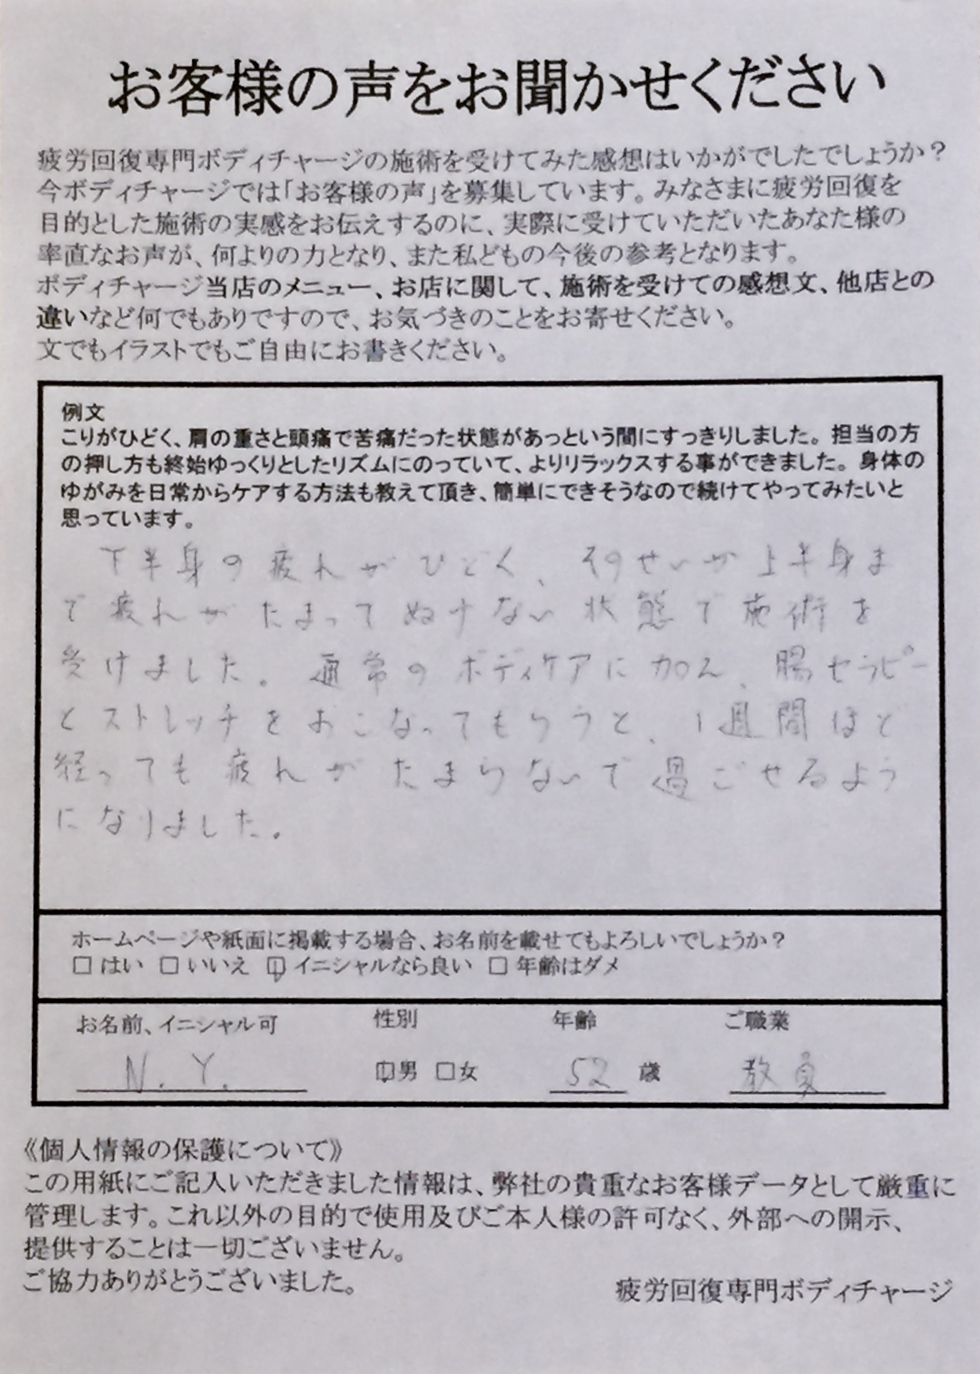 お客様の声をお聞かせください
疲労回復専門ボディチャージの施術を受けてみた感想はいかがでしたでしょうか?
今ボディチャージでは「お客様の声」を募集しています。みなさまに疲労回復を
目的とした施術の実感をお伝えするのに、実際に受けていただいたあなた様の
率直なお声が、何よりの力となり、また私どもの今後の参考となります。
ボディチャージ当店のメニュー、お店に関して、施術を受けての感想文、他店との
違いなど何でもありですので、お気づきのことをお寄せください。
文でもイラストでもご自由にお書きください。
例文
こりがひどく、肩の重さと頭痛で苦痛だった状態があっという間にすっきりしました。担当の方
の押し方も終始ゆっくりとしたリズムにのっていて、よりリラックスする事ができました。身体の
ゆがみを日常からケアする方法も教えて頂き、簡単にできそうなので続けてやってみたいと
思っています。
下半身の疲れがひどく、そのせいか上半身ま
で疲れがたまってぬけない状態で施術を
受けました。通常のボディケアに加え、腸セラピー
とストレッチをおこなってもらうと、1週間ほど
経っても疲れがたまらないで過ごせるよう
になりました。
ホームページや紙面に掲載する場合、お名前を載せてもよろしいでしょうか?
□ はい □ いいえ ☑ イニシャルなら良い □ 年齢はダメ
お名前、イニシャル可 性別 年齢 ご職業
N.Y. ☑男 □女 52 歳 教員
《個人情報の保護について》
この用紙にご記入いただきました情報は、弊社の貴重なお客様データとして厳重に
管理します。これ以外の目的で使用及びご本人様の許可なく、外部への開示、
提供することは一切ございません。
ご協力ありがとうございました。
疲労回復専門ボディチャージ